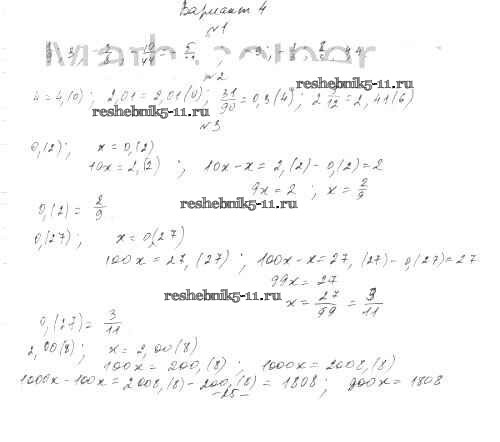 Вариант 4
№1
№2
4 = 4,(0); 2,01 = 2,01(0); 31/90 = 0,3(4); 2 5/12 = 2,41(6)
reshebnik5-11.ru
reshebnik5-11.ru
№3
0,(2); x = 0,(2)
10x = 2,(2); 10x - x = 2,(2) - 0,(2) = 2
9x = 2; x = 2/9
0,(2) = 2/9.
reshebnik5-11.ru
0,(27); x = 0,(27)
100x = 27,(27); 100x - x = 27,(27) - 0,(27) = 27
99x = 27
reshebnik5-11.ru
x = 27/99 = 3/11
0,(27) = 3/11.
2,00(8); x = 2,00(8)
100x = 200,(8); 1000x = 2008,(8)
1000x - 100x = 2008,(8) - 200,(8) = 1808; 900x = 1808